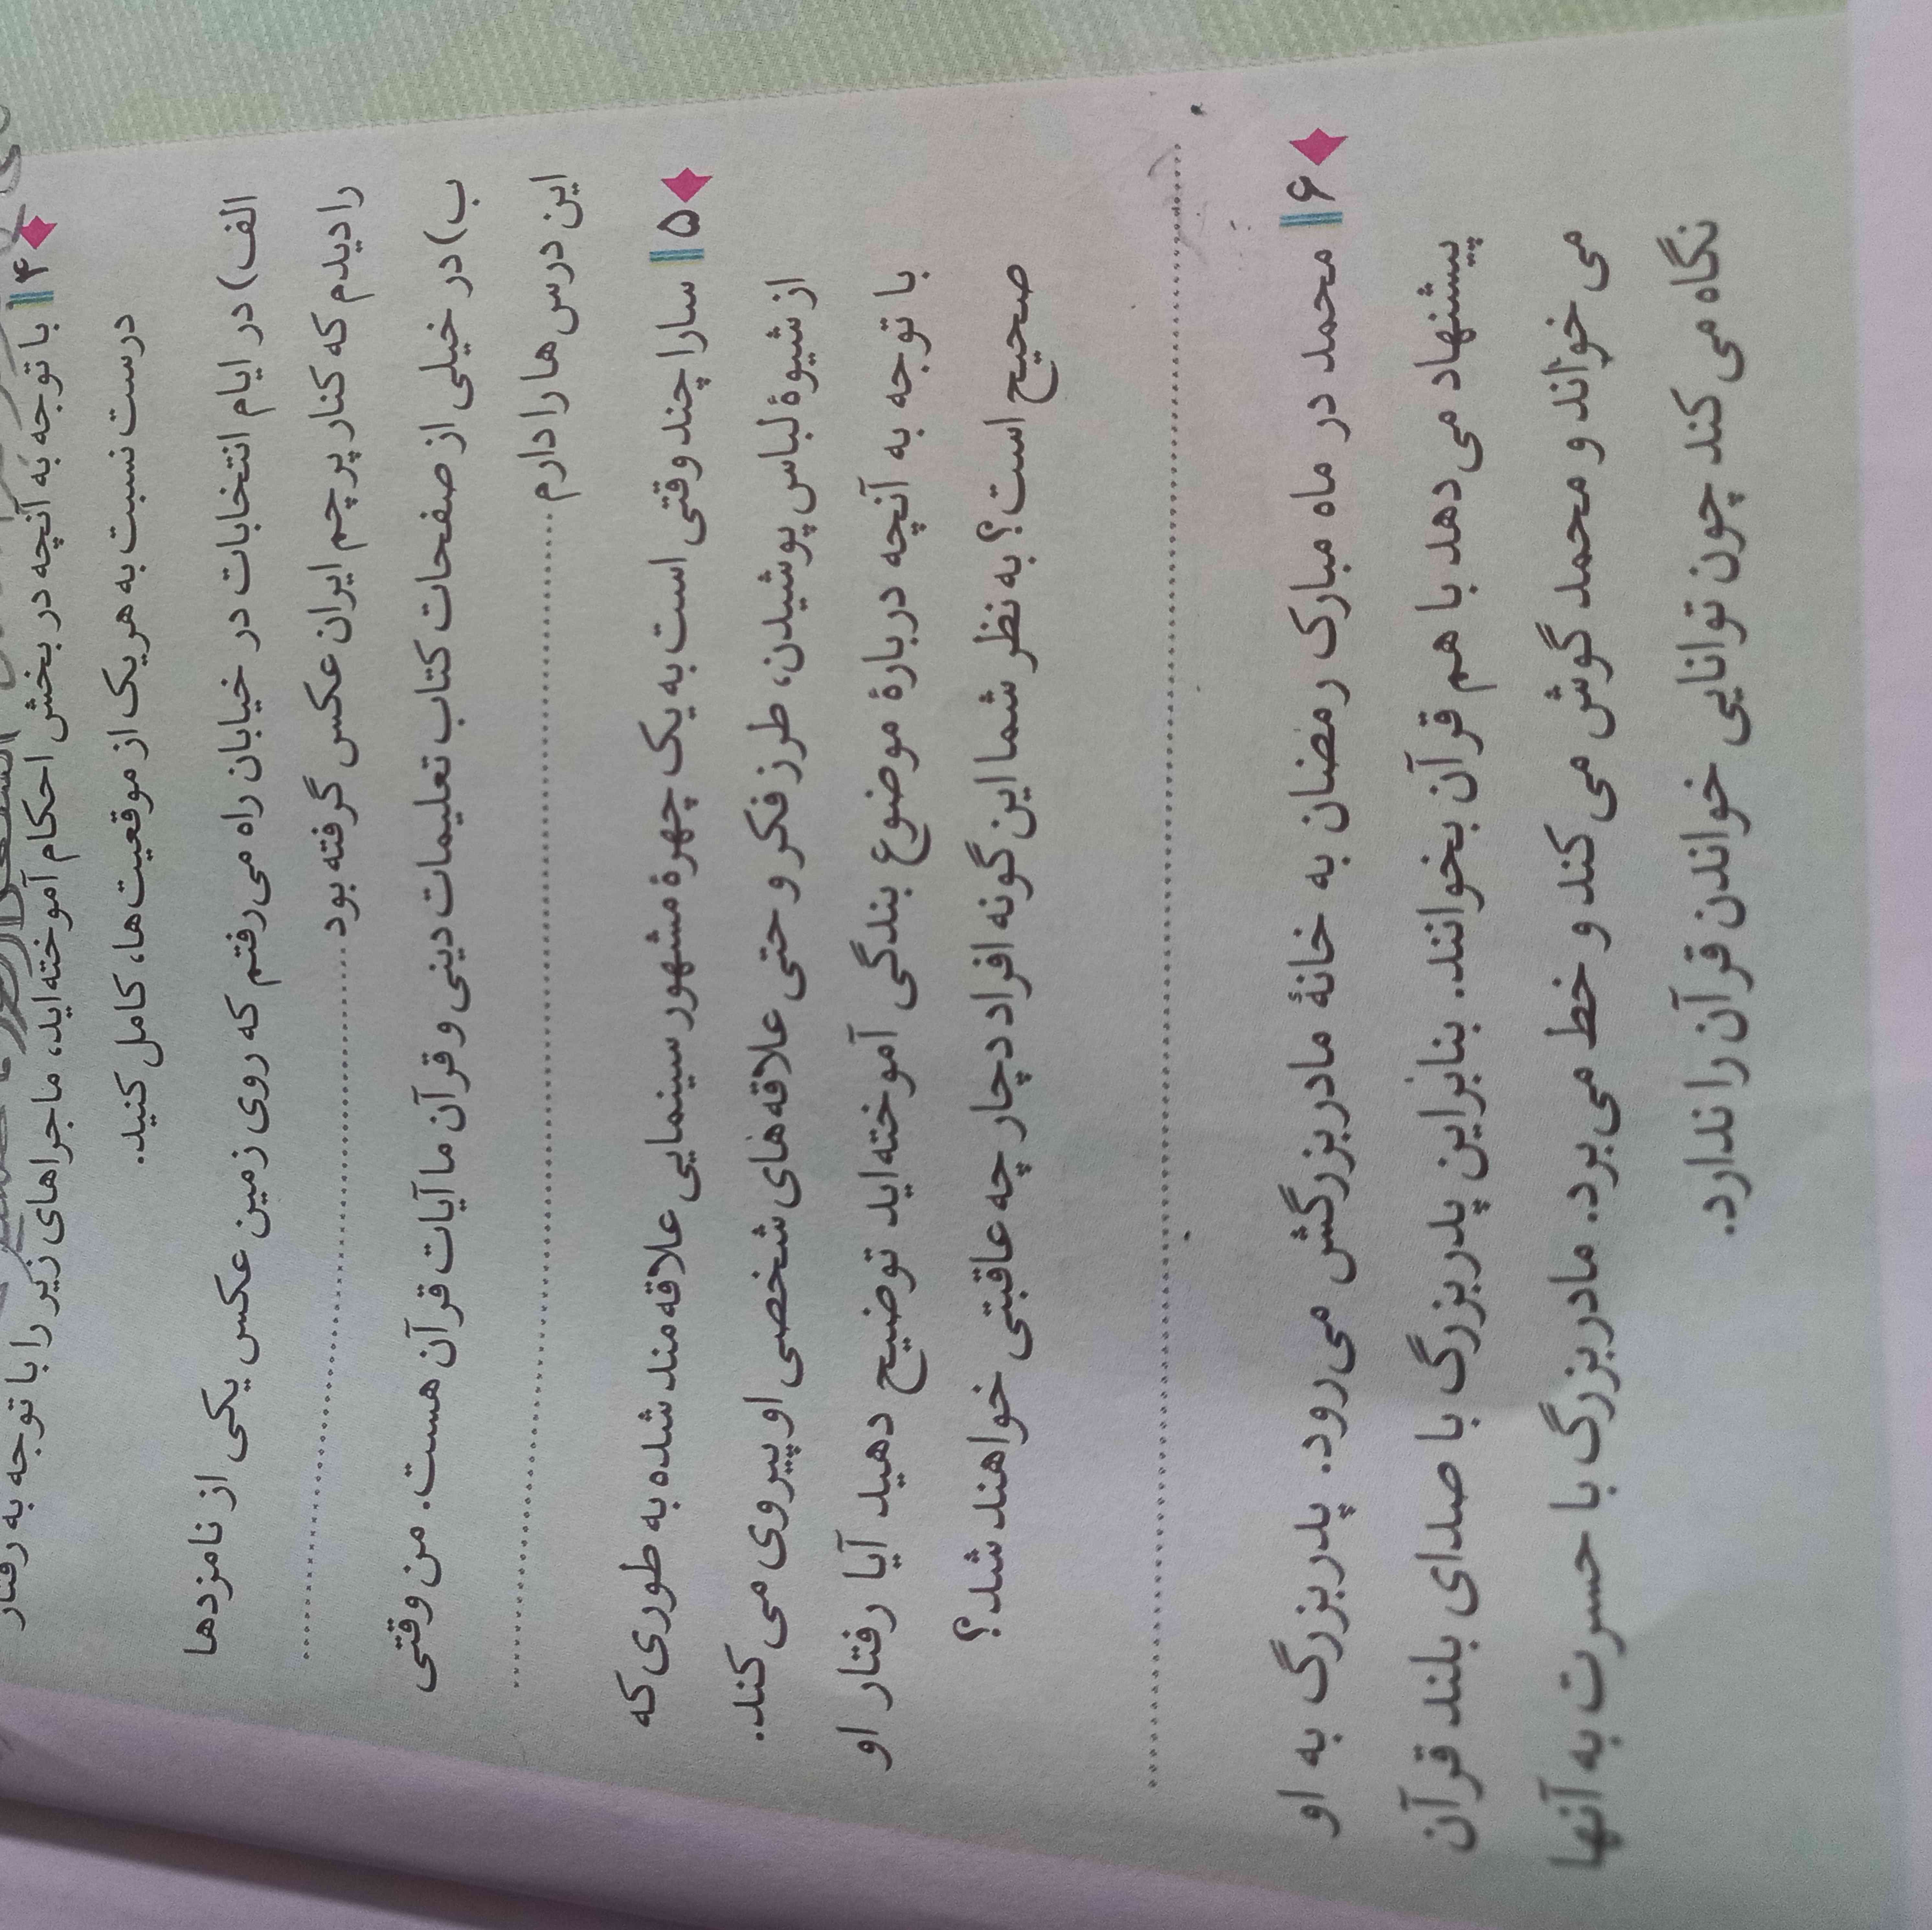 ۴ با توجه به آنچه در بخش احکام آموخته‌اید، ماجراهای زیر را با توجه به رفتار
درست نسبت به هریک از موقعیت‌ها، کامل کنید.
الف) در ایام انتخابات در خیابان راه می‌رفتم که روی زمین عکس یکی از نامزدها
را دیدم که کنار پرچم ایران عکس گرفته بود ..............................
ب) در خیلی از صفحات کتاب تعلیمات دینی و قرآن ما آیات قرآن هست. من وقتی
این درس‌ها را دارم ..............................
۵ سارا چند وقتی است به یک چهرهٔ مشهور سینمایی علاقه‌مند شده به طوری که
از شیوهٔ لباس پوشیدن، طرز فکر و حتی علاقه‌های شخصی او پیروی می‌کند.
با توجه به آنچه دربارهٔ موضوع بندگی آموخته‌اید توضیح دهید آیا رفتار او
صحیح است؟ به نظر شما این گونه افراد دچار چه عاقبتی خواهند شد؟
..............................
۶ محمد در ماه مبارک رمضان به خانهٔ مادربزرگش می‌رود. پدربزرگ به او
پیشنهاد می‌دهد با هم قرآن بخوانند. بنابراین پدربزرگ با صدای بلند قرآن
می‌خواند و محمد گوش می‌کند و خط می‌برد. مادربزرگ با حسرت به آنها
نگاه می‌کند چون توانایی خواندن قرآن را ندارد.